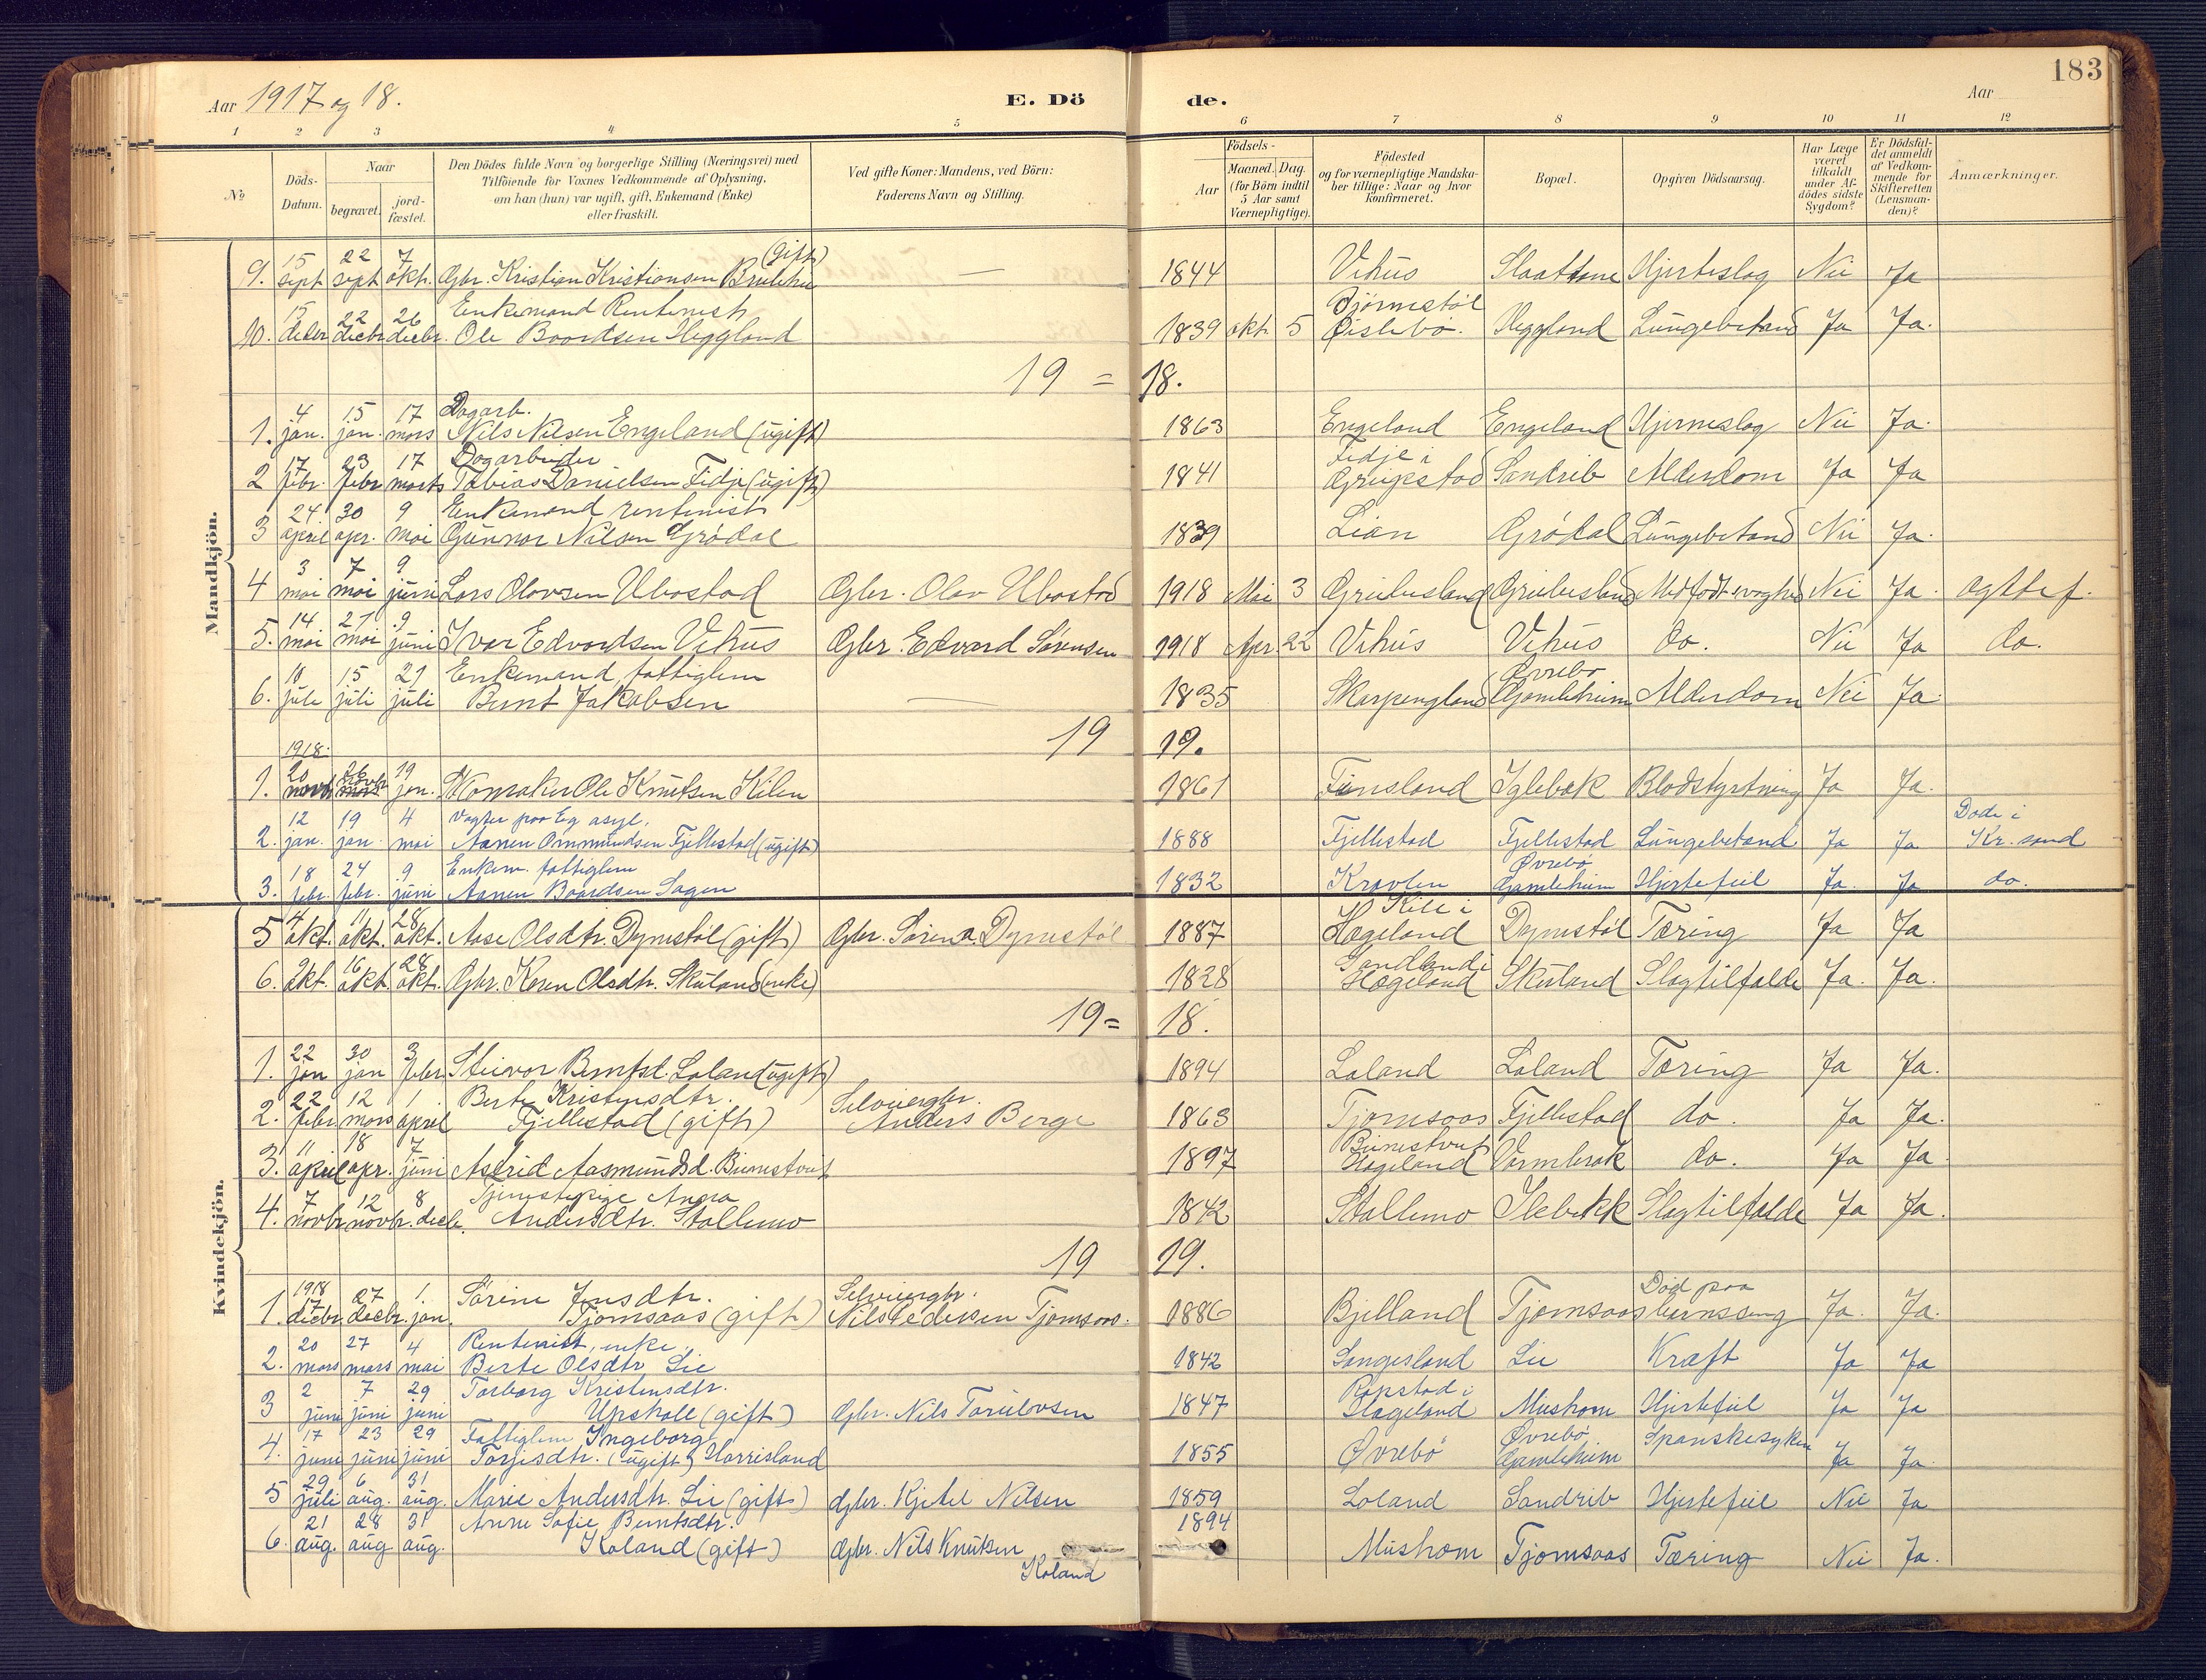 183
Aar 1917 og 18.
E. Dö de.
Aar
1 2 3 4 5 6 7 8 9 10 11 12
No
Döds-Datum.
Naar
begravet.
jord-fæstet.
Den Dödes fulde Navn og borgerlige Stilling (Næringsvei) med
Tilföiende for Voxnes Vedkommende af Oplysning,
om han (hun) var ugift, gift, Enkemand (Enke)
eller fraskilt.
Ved gifte Koner: Mandens, ved Börn:
Faderens Navn og Stilling.
Födsels-
Aar
Maaned. Dag.
(for Börn indtil
5 Aar samt
Værnepligtige).
Födested
og for værnepligtige Mandska-
ber tillige: Naar og hvor
konfirmeret.
Bopæl.
Opgiven Dödsaarsag.
Har Læge
været
tilkaldt
under Af-
dödes sidste
Sygdom?
Er Dödsfal-
det anmeldt
af Vedkom-
mende for
Skifteretten
(Lensman-
den)?
Anmærkninger.
Mandkjön.
9. 15 sept 22 sept 7 okt. Gbr. Kristian Kristiansen (gift) — 1844 Vehus Slaattene Hjerteslag Nei Ja
10. 15 decbr 22 decbr 26 decbr. Enkemand Rentenist
Ole Baardsen Heggland 1839 okt. 5 Øislebø. Heggland Lungebetænd Ja Ja.
19 = 18.
1. 4 jan. 15 jan. 17 mars Dagarb.
Nils Nilsen Engeland (ugift) 1863 Engeland Engeland Hjerneslag Nei Ja.
2 17 febr. 23 febr 17 marts Dagarbeider
Tobias Danielsen Fidje (ugift) 1841 Fidje i
Greipstad Sandrib Alderdom Ja Ja
3 24 april 30 apr. 9 mai Enkemand rentenist
Gunnar Nilsen Grödal 1839 Lian Grödal Lungebetænd Nei Ja.
4 3 mai 7 mai 9 juni Lars Olavsen Ubostad Gbr. Olav Ubostad 1918 Mai 3 Greibesland Greibesland Medfødt svaghed Nei Ja.
5. 14. mai 21 mai 9 juni Ivar Edvardsen Vehus Gbr. Edvard Sørensen 1918 Apr. 22 Vehus Vehus do. Nei Ja do.
6. 10 juli 15 juli 21 juli Enkemand, fattiglem
Bernt Jakobsen — 1835 Skarpengland Øvrebø
Gamlehiem Alderdom Nei Ja.
19 19.
1. 1918. 20 novbr 26 novbr 19 jan. Ole Knutsen Kilen 1861 Finsland Iglebæk Blodstyrtning Ja Ja.
2. 12 jan. 19 jan. 4 mai Vogter paa Eg asyl.
Aanen Ommundsen Fjellestad (ugift) 1888 Fjellestad Fjellestad Lungebetænd Ja Ja Døde i
Kr.sand
3. 18 febr. 24 febr. 9 juni Enkem. fattiglem
Aanen Baardsen Sagen 1832 Kravlen Øvrebø
Gamlehiem Hjertefeil Ja. Ja do.
Kvindekjön.
5 4 okt. 11 okt. 28 okt. Aase Olsdtr. Dynestøl (gift) Gbr. Søren A. Dynestøl 1887 Kile i
Hægeland Dynestøl Tæring Ja Ja
6. 9 okt. 16 okt. 28 okt. Gbr. Karen Olsdtr. Skuland (enke) 1828 Hægeland Skuland Slagtilfælde Ja. Ja.
19 = 18.
1. 22 jan 30 jan 3 febr Steivor Berntsd. Loland (ugift) 1894 Loland Loland Tæring Ja Ja.
2. 22 febr 12 mars 1. april Berte Kristensdtr.
Fjellestad (gift) Selveiergbr.
Anders Berge 1863 Tjomsaas Fjellestad do. Ja Ja.
3. 11 april 18 apr. 7 juni Astrid Aasmundsd. 1897 Hægeland do. Ja Ja.
4. 7 novbr 12 novbr. 8 decb. Tjenestepige Anna
Andersdtr. Stallemo 1842 Stallemo Ilebekk Slagtilfælde Ja Ja.
19 19.
1. 1918 17 decbr. 27 decbr. 1. jan. Sørine Jensdtr.
Tjomsaas (gift) Selveiergbr.
Nils Pedersen Tjomsaas. 1886 Bjelland Tjomsaas Død paa
barnseng Ja. Ja.
2. 20 mars 27 mars 4 mai Rentenist, enke
Berte Olsdtr Lie 1842 Songesland Lie Kræft Ja Ja
3 2 juni 7 juni 29 juni Torborg Kristensdtr.
Upskall (gift) Gbr. Nils Torielvsen 1847 Røpstad i
Hægeland Mushom Hjertefeil Ja Ja
4. 17 juni 23 juni 29 juni Fattiglem Ingeborg
Torjesdtr. (ugift) Horrisland 1855 Øvrebø Øvrebø
Gamlehiem Spanskesyken Ja Ja.
5 29 juli 6 aug. 31 aug. Marie Andersdtr. Lie (gift) Gbr. Kjetel Nilsen 1859 Loland Sandrib Hjertefeil Nei Ja
6. 21 aug. 28 aug 31 aug. Anne Sofie Berntsdtr.
Koland (gift) Gbr. Nils Knutsen
Koland 1894 Mushom Tjomsaas Tæring Nei Ja.